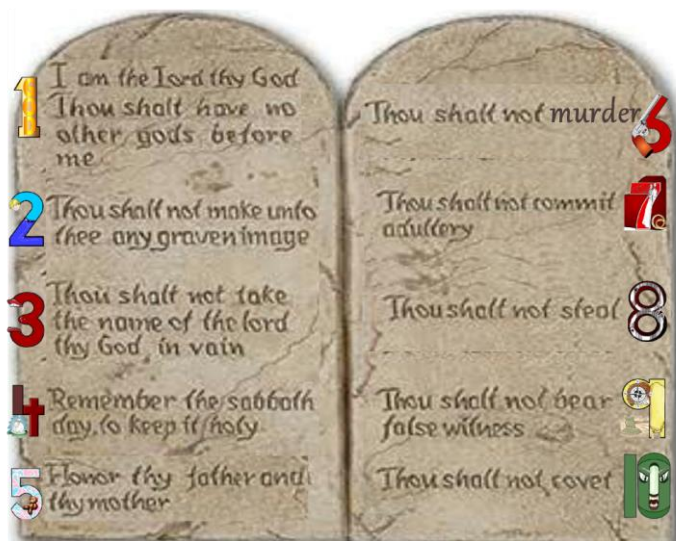 1
I am the Lord thy God
Thou shalt have no
other gods before
me
2
Thou shalt not make unto
thee any graven image
3
Thou shalt not take
the name of the lord
thy God in vain
4
Remember the sabbath
day, to keep it holy
5
Honor thy father and
thy mother
Thou shalt not murder
6
Thou shalt not commit
adultery
7
Thou shalt not steal
8
Thou shalt not bear
false witness
9
Thou shall not covet
10